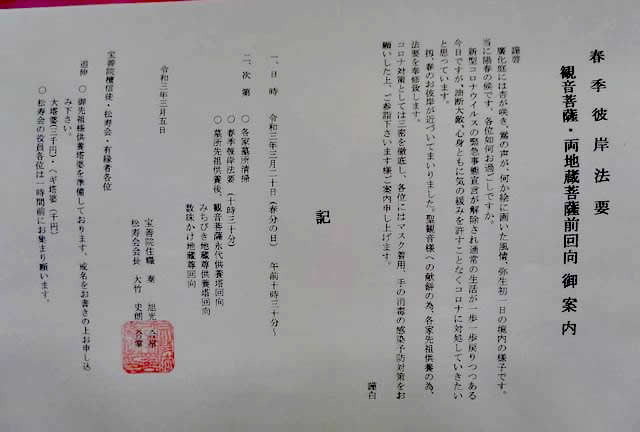 春季彼岸法要
観音菩薩・両地蔵菩薩前回向 御案内
謹啓
廣化庭には杏が咲き、鶯の声が、何か絵に画いた風情、弥生初一日の境内の様子です。
当に陽春の候です。各位如何お過ごしですか。
新型コロナウイルスの緊急事態宣言が解除され通常の生活が一歩一歩戻りつつある
今日ですが、油断大敵、心身ともに気の緩みを許すことなくコロナに対処していきたい
と思っています。
扨、春のお彼岸が近づいてまいりました。聖観音様への献餅の為、各家先祖供養の為、
法要を奉修致します。
コロナ対策としては三密を徹底し、各位にはマスク着用、手の消毒の感染予防対策をお
願いした上、ご参詣下さいます様ご案内申し上げます。
謹白
記
一、日 時 令和三年三月二十日(春分の日) 午前十時三十分~
二、次 第 ○ 各家墓所清掃
○ 春季彼岸法要 (十時三十分)
○ 墓所先祖供養後、観音菩薩永代供養塔回向
みちびき地蔵尊供養塔回向
数珠かけ地蔵尊回向
令和三年三月五日
宝善院住職 秦 旭光 合掌
松寿会会長 大竹 史朗 合掌
宝善院檀信徒・松寿会・有縁者各位
追伸 ○ 御先祖様供養塔婆を準備しております、戒名をお書きの上お申し込
み下さい。
大塔婆(三千円)・ヘギ塔婆(千円)
○ 松寿会の役員各位は一時間前にお集まり願います。